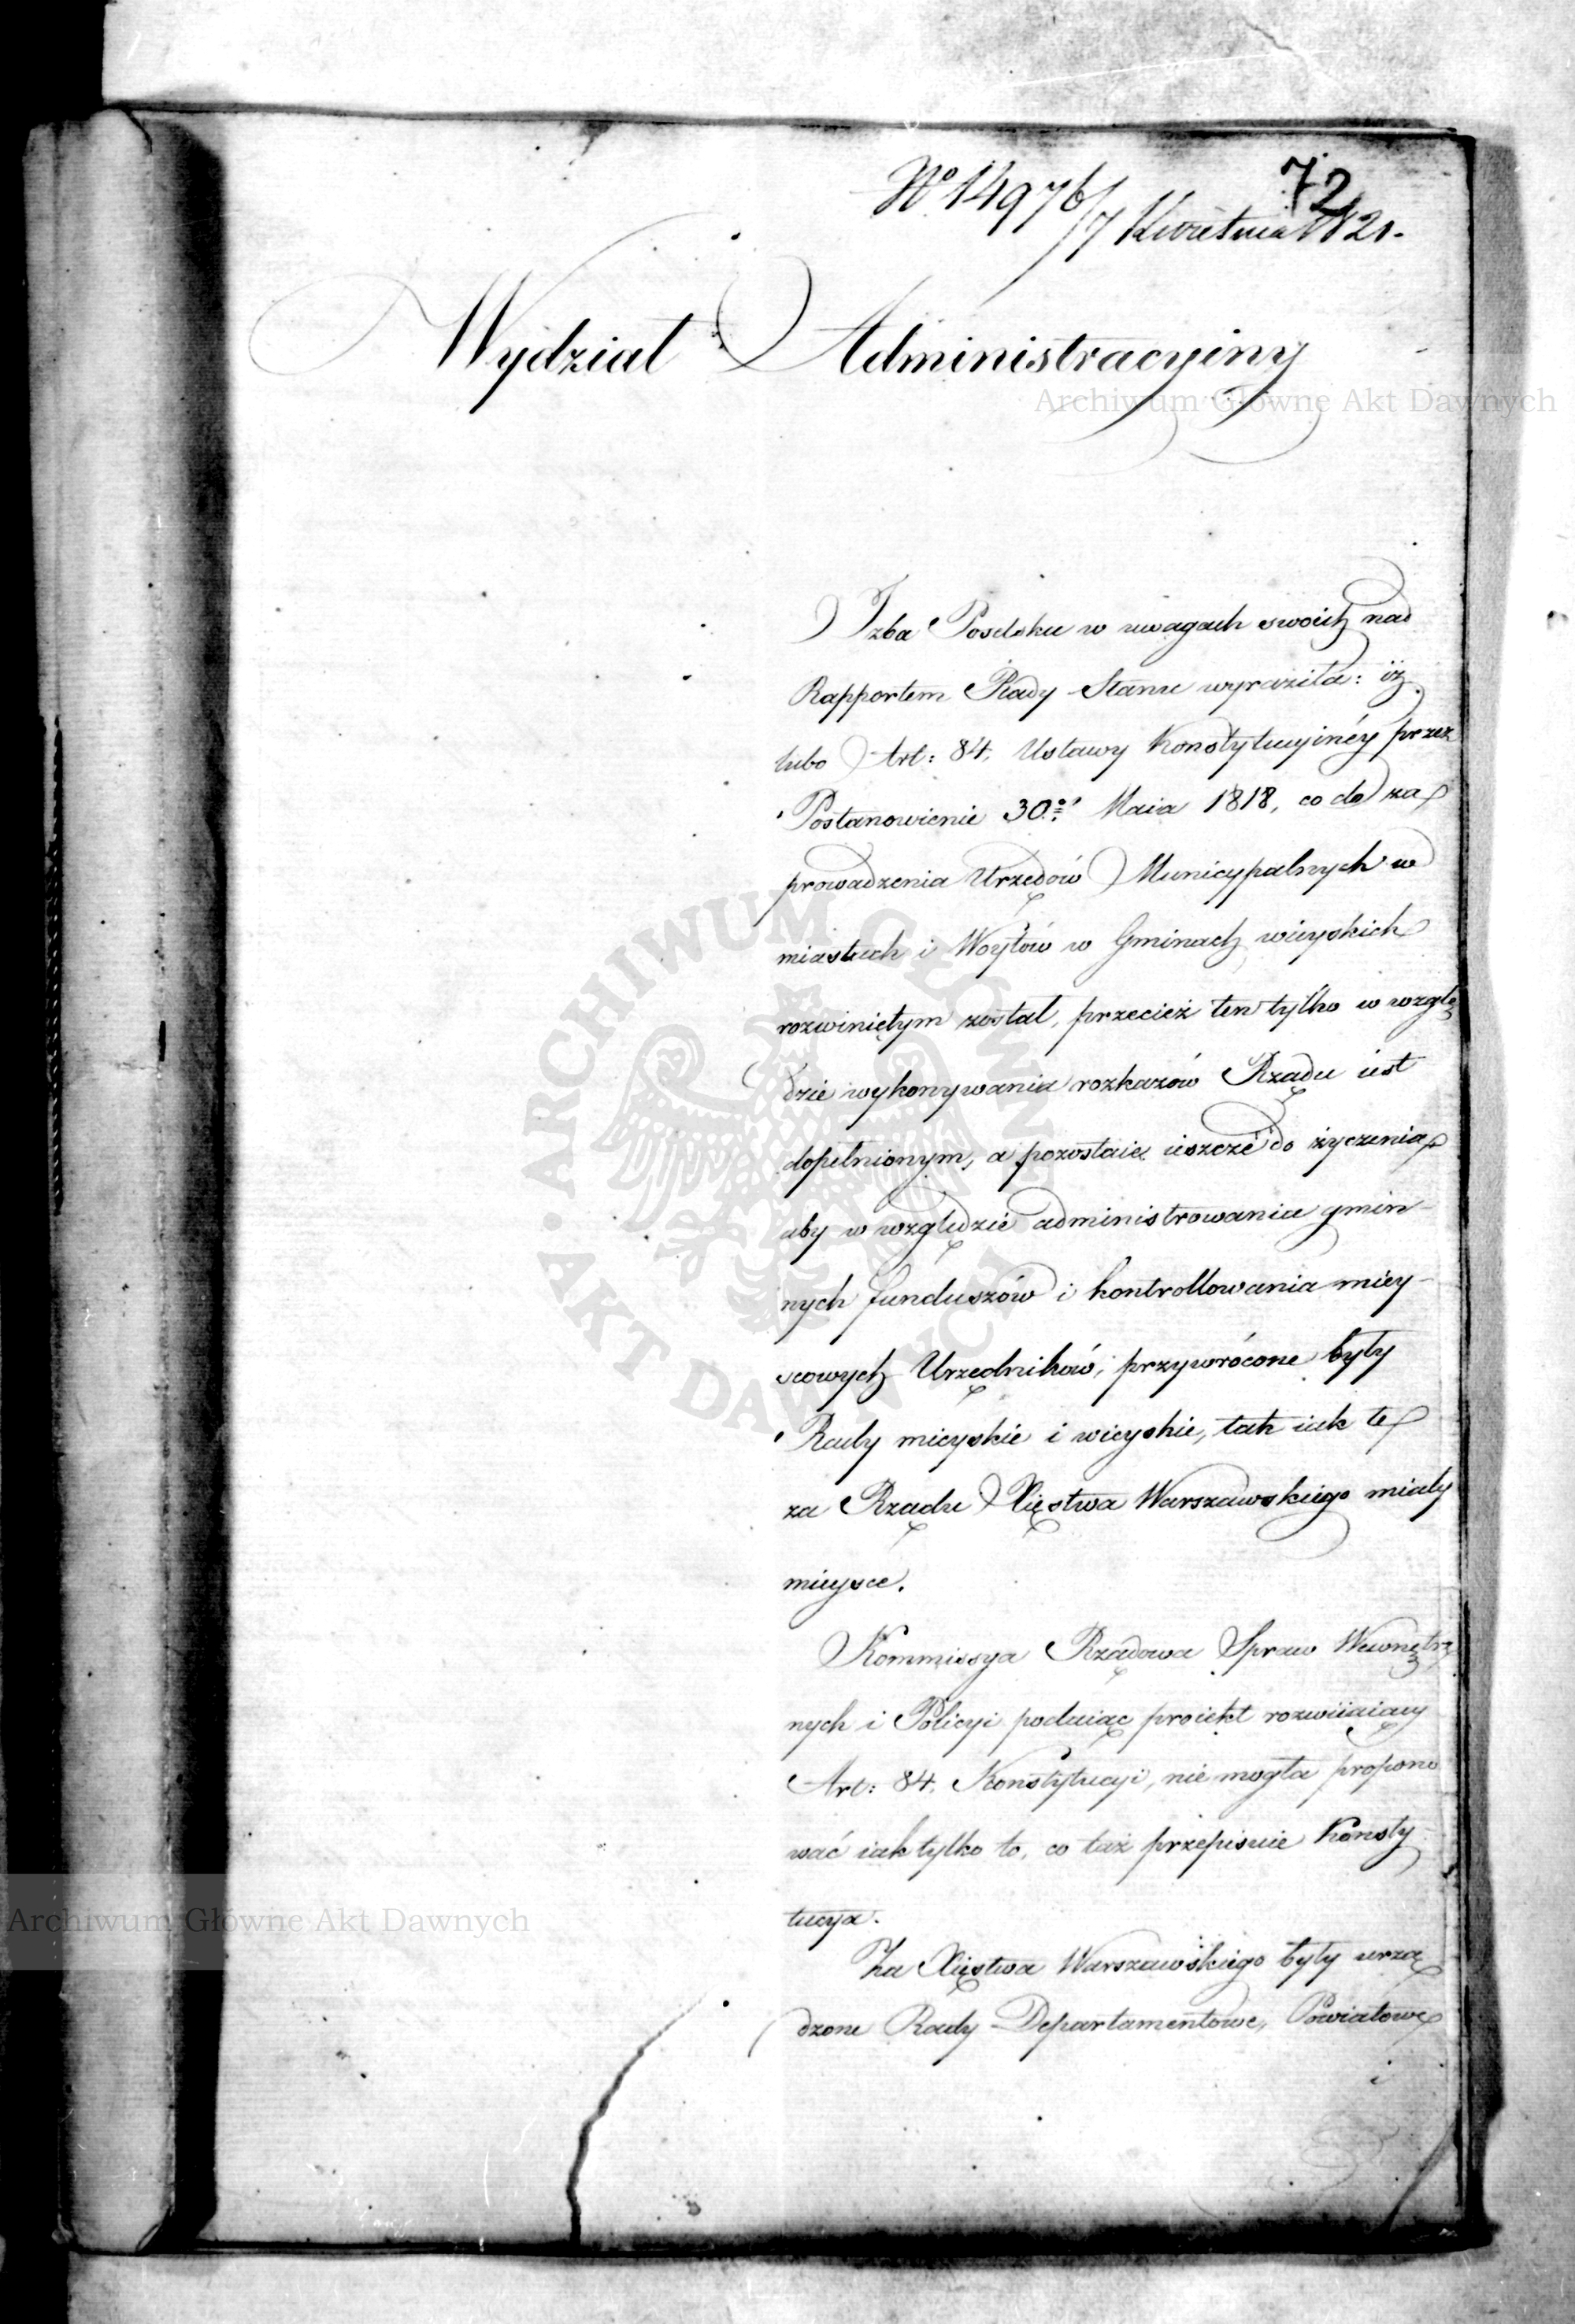 72
No 14976/7 Kwietnia 1821.
Wydział Administracyiny
Archiwum Główne Akt Dawnych
Izba Poselska w uwagach swoich nad
Rapportem Rady Stanu wyraziła: iż
lubo Art: 84. Ustawy Konstytucyinéy przez
Postanowienie 30go Maia 1818, co do za
prowadzenia Urzędów Municypalnych w
miastach i Woytów w Gminach wieyskich
rozwiniętym został, przecież ten tylko w wzglę
dzie wykonywania rozkazów Rządu iest
dopełnionym, a pozostaie ieszcze do życzenia
aby w względzie administrowania gmin-
nych funduszów i kontrollowania miey-
scowych Urzędników, przywrócone były
Rady mieyskie i wieyskie, tak iak te
za Rządu Xięstwa Warszawskiego miały
mieysce.
Kommissya Rządowa Spraw Wewnętrz
nych i Policyi podaiąc proiekt rozwiiaiący
Art: 84. Konstytucyi, nie mogła propono
wać iak tylko to, co taż przepisuie Konsty-
tucya.
Za Xięstwa Warszawskiego były urzą
dzone Rady Departamentowe, Powiatowe
i
ARCHIWUM GŁÓWNE AKT DAWNYCH
Archiwum Główne Akt Dawnych